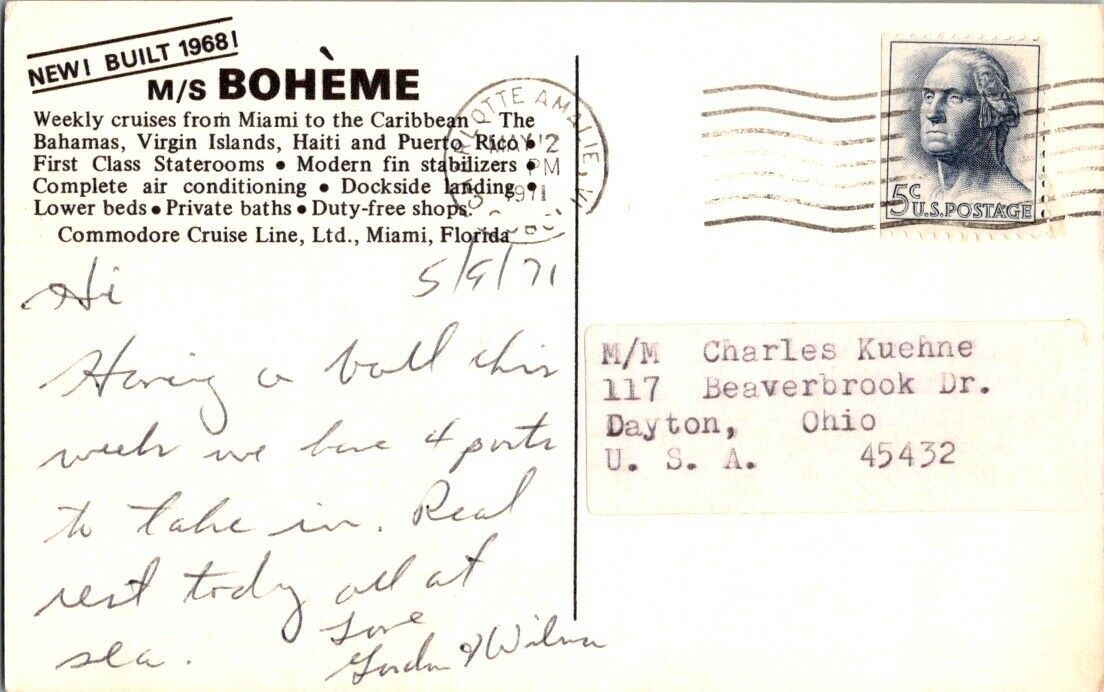 NEW! BUILT 1968!
M/S BOHÈME
Weekly cruises from Miami to the Caribbean The
Bahamas, Virgin Islands, Haiti and Puerto Rico •
First Class Staterooms • Modern fin stabilizers •
Complete air conditioning • Dockside landing •
Lower beds • Private baths • Duty-free shops.
Commodore Cruise Line, Ltd., Miami, Florida
CHARLOTTE AMALIE, V.I.
MAY 12
PM
1971
5c
U.S. POSTAGE
5/9/71
Hi
Having a ball this
week we have 4 ports
to take in. Real
rest today all at
sea.
Love
Gordon & Wilma
M/M Charles Kuehne
117 Beaverbrook Dr.
Dayton, Ohio
U. S. A. 45432